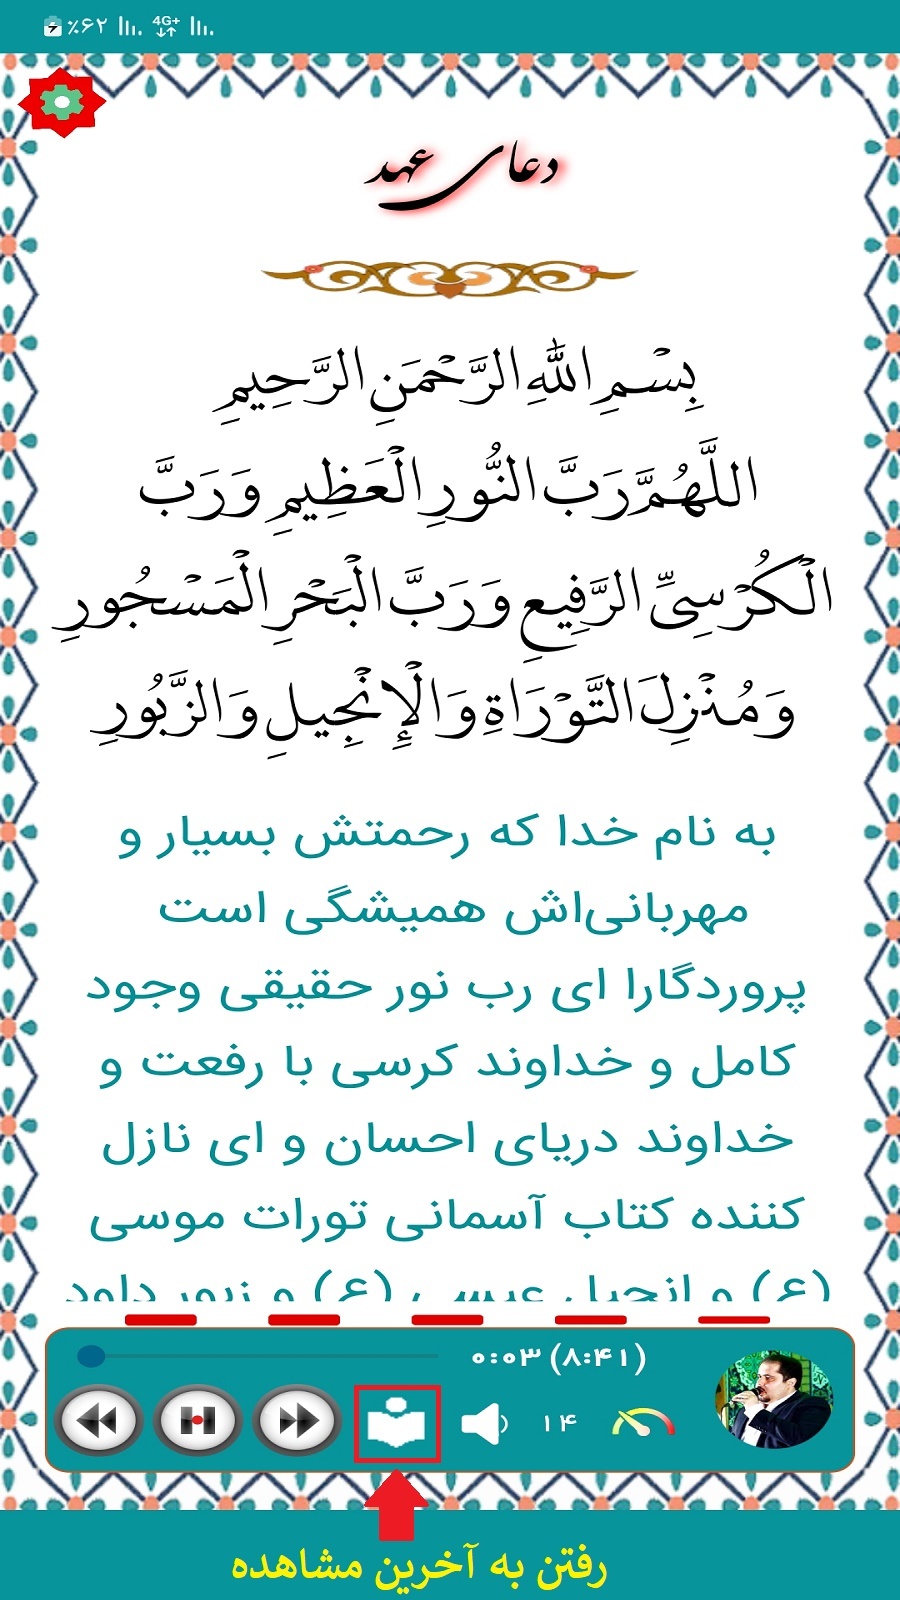 ٪۶۲ 4G+
دعای عهد
بِسْمِ اللَّهِ الرَّحْمَنِ الرَّحِيمِ
اللَّهُمَّ رَبَّ النُّورِ الْعَظِيمِ وَ رَبَّ
الْكُرْسِيِّ الرَّفِيعِ وَ رَبَّ الْبَحْرِ الْمَسْجُورِ
وَ مُنْزِلَ التَّوْرَاةِ وَ الْإِنْجِيلِ وَ الزَّبُورِ
به نام خدا که رحمتش بسیار و
مهربانی‌اش همیشگی است
پروردگارا ای رب نور حقیقی وجود
کامل و خداوند کرسی با رفعت و
خداوند دریای احسان و ای نازل
کننده کتاب آسمانی تورات موسی
(ع) و انجیل عیسی (ع) و زبور داود
۰:۰۳ (۸:۴۱)
۱۴
رفتن به آخرین مشاهده